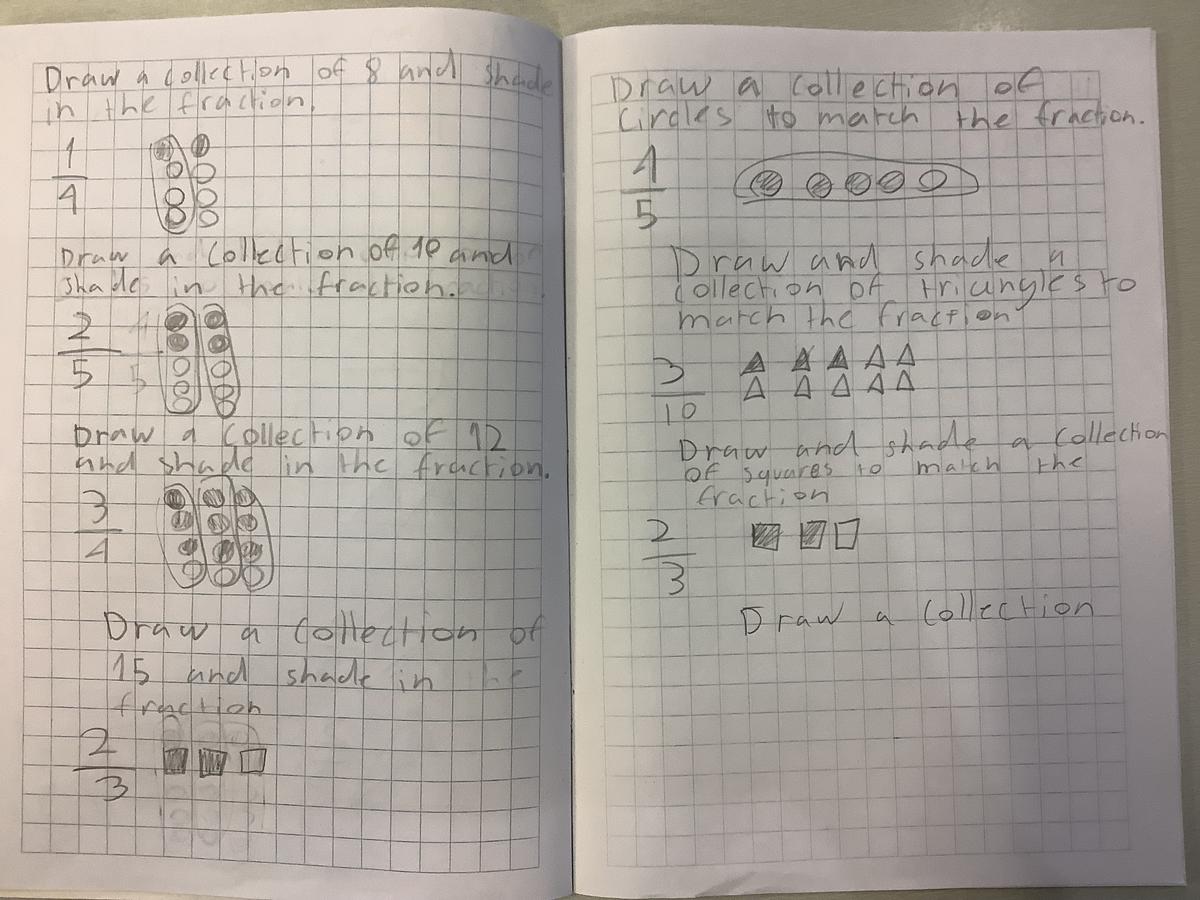 Draw a collection of 8 and shade
in the fraction.
1
4
Draw a collection of 10 and
shade in the fraction.
2
5
Draw a collection of 12
and shade in the fraction.
3
4
Draw a collection of
15 and shade in
fraction
2
3
Draw a collection of
circles to match the fraction.
4
5
Draw and shade a
collection of triangles to
match the fraction
3
10
Draw and shade a collection
of squares to match the
fraction
2
3
Draw a collection